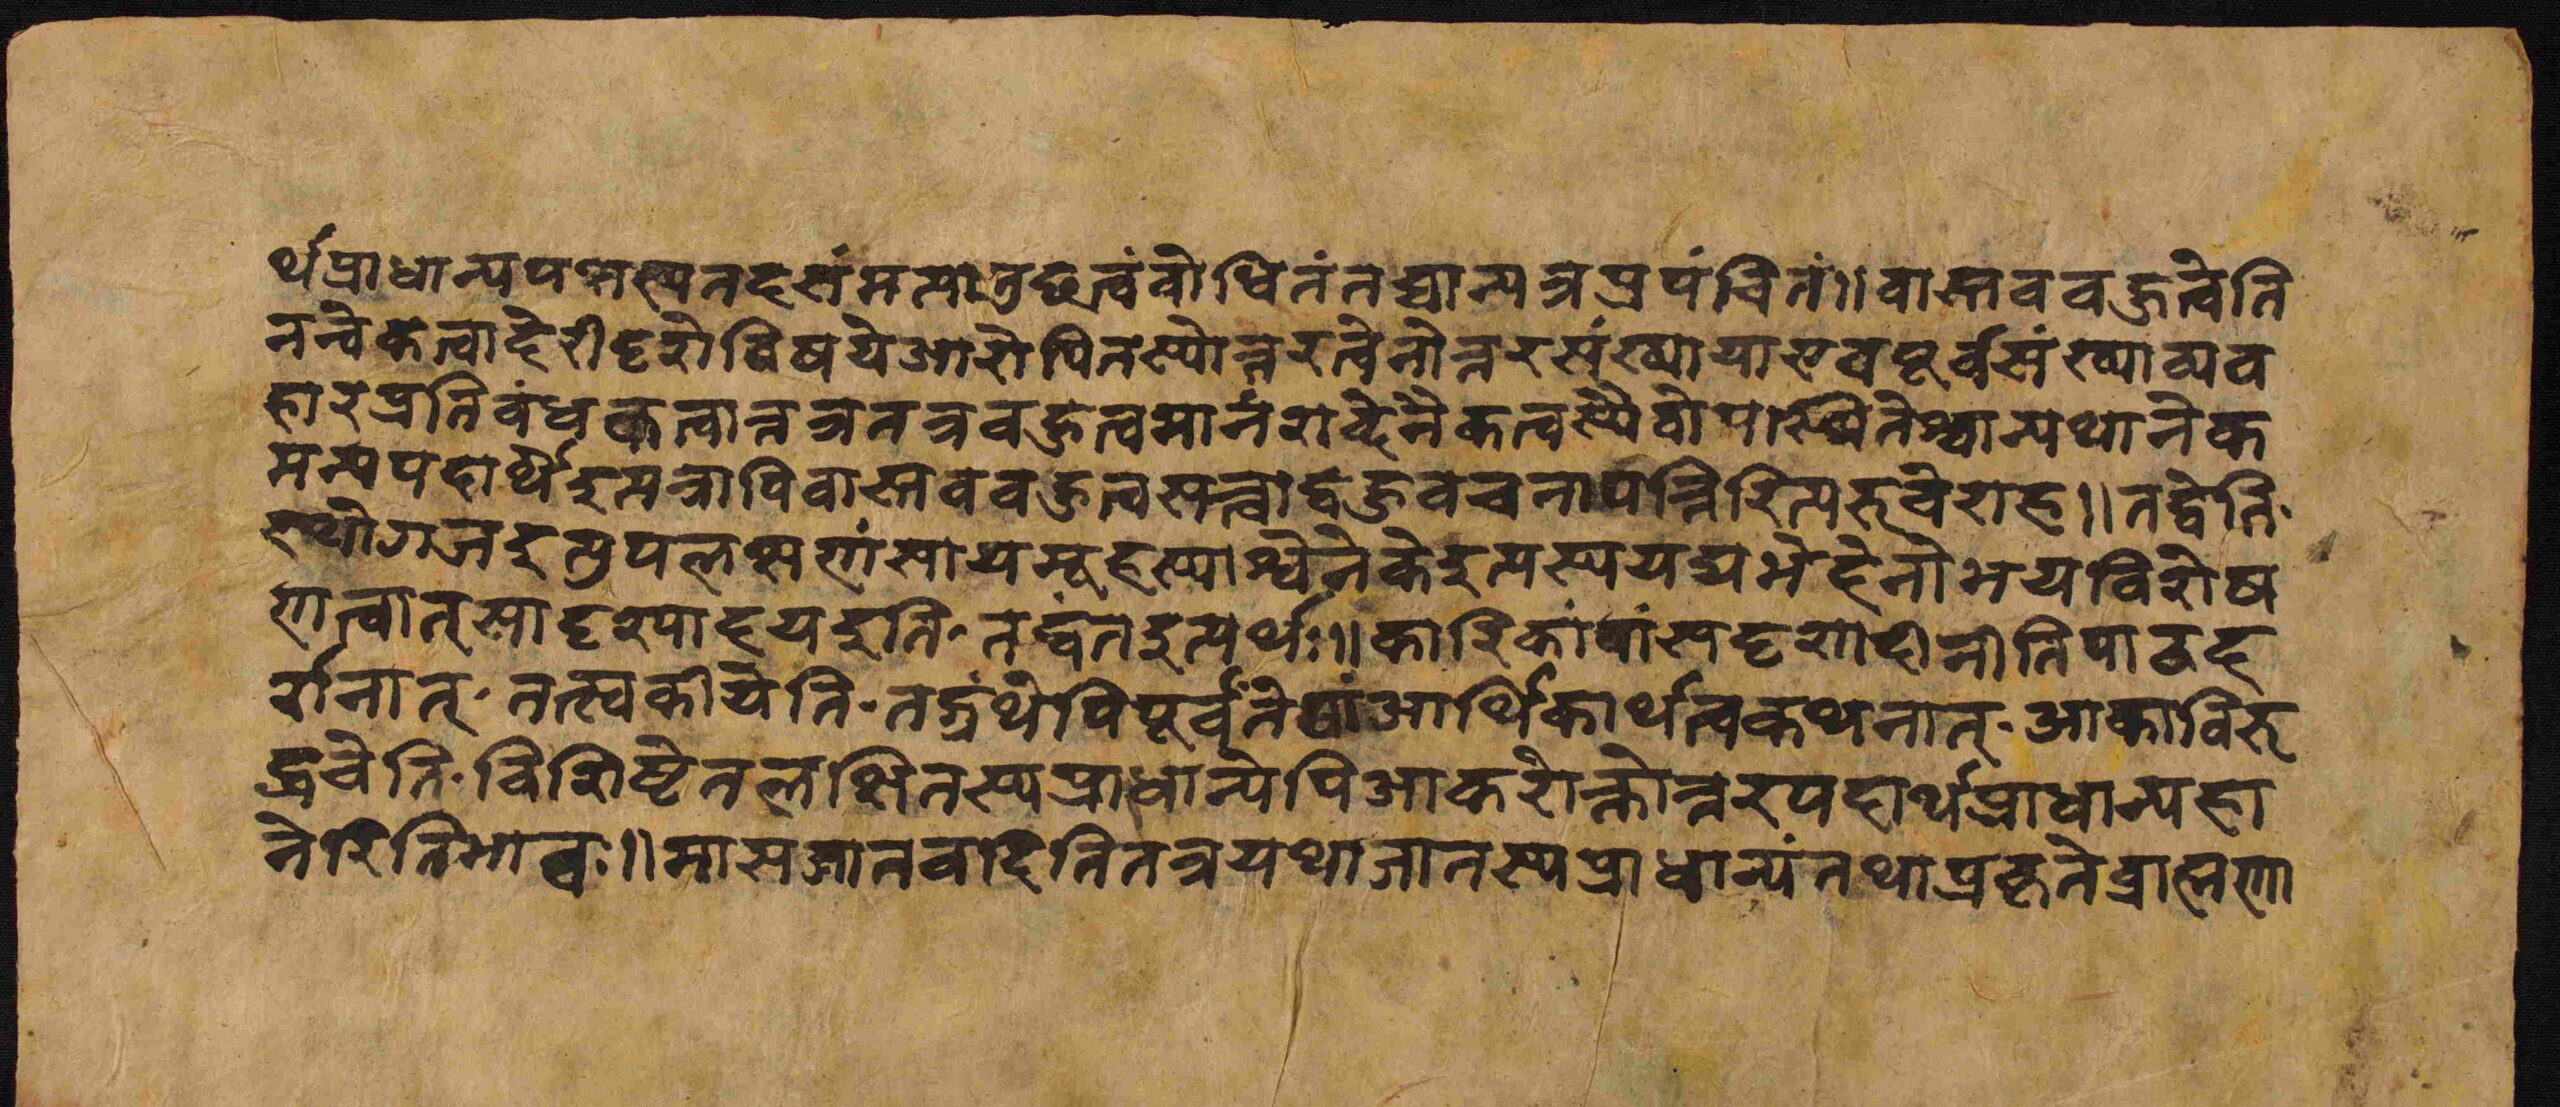 र्थप्राधान्यपक्षस्यतदसंमत्यातुछत्वंबोधितंतच्चान्यत्रप्रपंचितं॥वास्तवबहुत्वेति
नन्वेकत्वादेरीदृशेविषयेआरोपितस्योत्तरत्वेनोत्तरसंख्यायाएवपूर्वसंख्याव्यव
हारप्रतिबंधकत्वात्तत्रतत्रबहुत्वमानंशब्देनैकत्वस्यैवोपस्थितेश्चान्यथानेक
मन्यपदार्थइमत्रापिवास्तवबहुत्वसत्त्वाद्बहुवचनापत्तिरित्यरुचेराह॥तद्वेति॰
रथोगजइत्युपलक्षणंसायमूहस्याश्वेनेकेइत्यस्ययद्यभेदेनोभयविशेष
णत्वात्सादृश्यादयइति॰तद्वंतइत्यर्थः॥कारिकांयांसदृशादीनीतिपाठद
र्शनात्॰तत्स्वकीयेति॰तद्ग्रंथेपिपूर्वंतेषांआर्थिकार्थत्वकथनात्॰आकाविरु
द्धवेति॰विशिष्टेनलक्षितस्यप्राधान्येपिआकरोक्तोत्तरपदार्थप्राधान्यहा
नेरितिभावः॥मासजातवदितितत्रयथाजातस्यप्राधान्यंतथाप्रकृतेब्राह्मणा